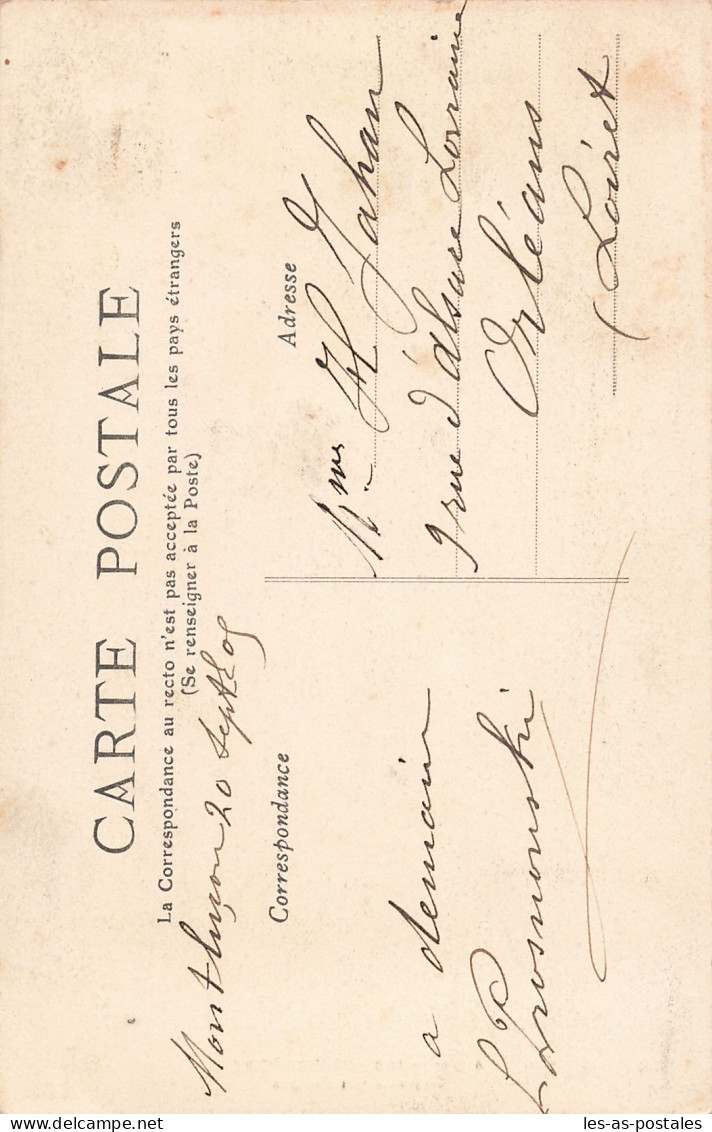 CARTE POSTALE
La Correspondance au recto n'est pas acceptée par tous les pays étrangers
(Se renseigner à la Poste)
Montluçon 20 Sept 05
Correspondance
a demain
Adresse
Mme H Jahan
9 rue d'alsace Lorraine
Orléans
(Loiret
les-as-postales